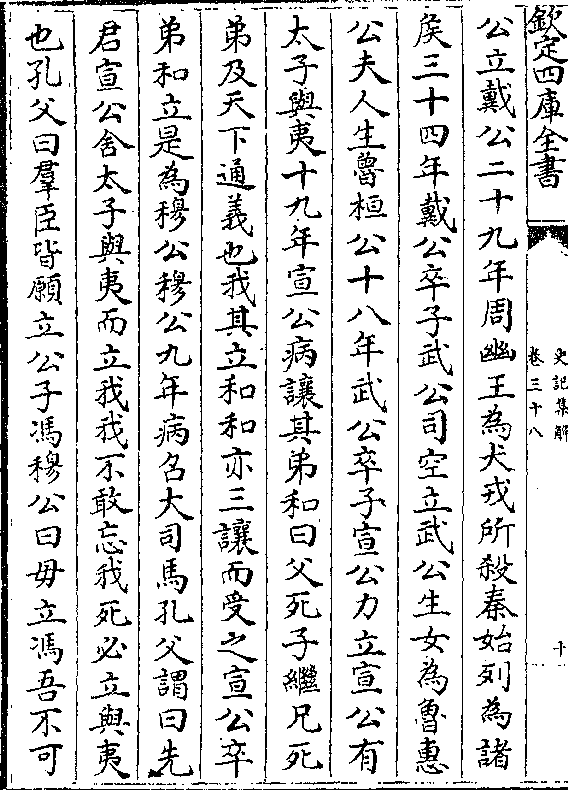 欽定四庫全書
史記集解
卷三十八
十
公立戴公二十九年周幽王為犬戎所殺秦始列為諸
矦三十四年戴公卒子武公司空立武公生女為魯惠
公夫人生魯桓公十八年武公卒子宣公力立宣公有
太子與夷十九年宣公病讓其弟和曰父死子繼兄死
弟及天下通義也我其立和和亦三讓而受之宣公卒
弟和立是為穆公穆公九年病名大司馬孔父謂曰先
君宣公舍太子與夷而立我我不敢忘我死必立與夷
也孔父曰羣臣皆願立公子馮穆公曰毋立馮吾不可